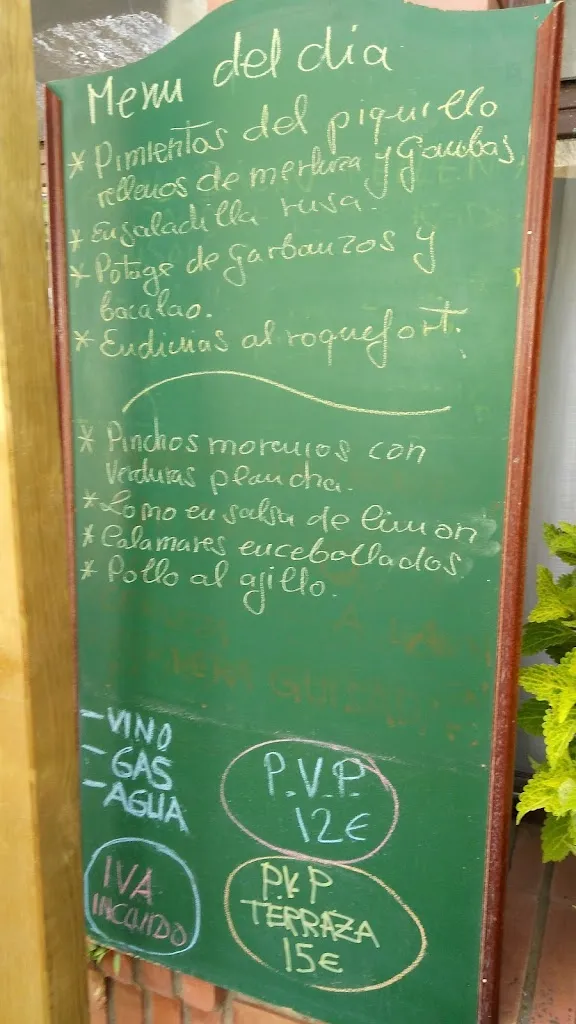 Menu del dia
* Pimientos del piquillo
rellenos de merluza y Gambas
* Ensaladilla rusa.
* Potage de Garbanzos y
bacalao.
* Endivias al roquefort.
* Pinchos morunos con
Verduras plancha.
* Lomo en salsa de limon
* Calamares encebollados.
* Pollo al ajillo.
- VINO
- GAS
- AGUA
P.V.P.
12€
IVA
INCLUIDO
P.V.P
TERRAZA
15€